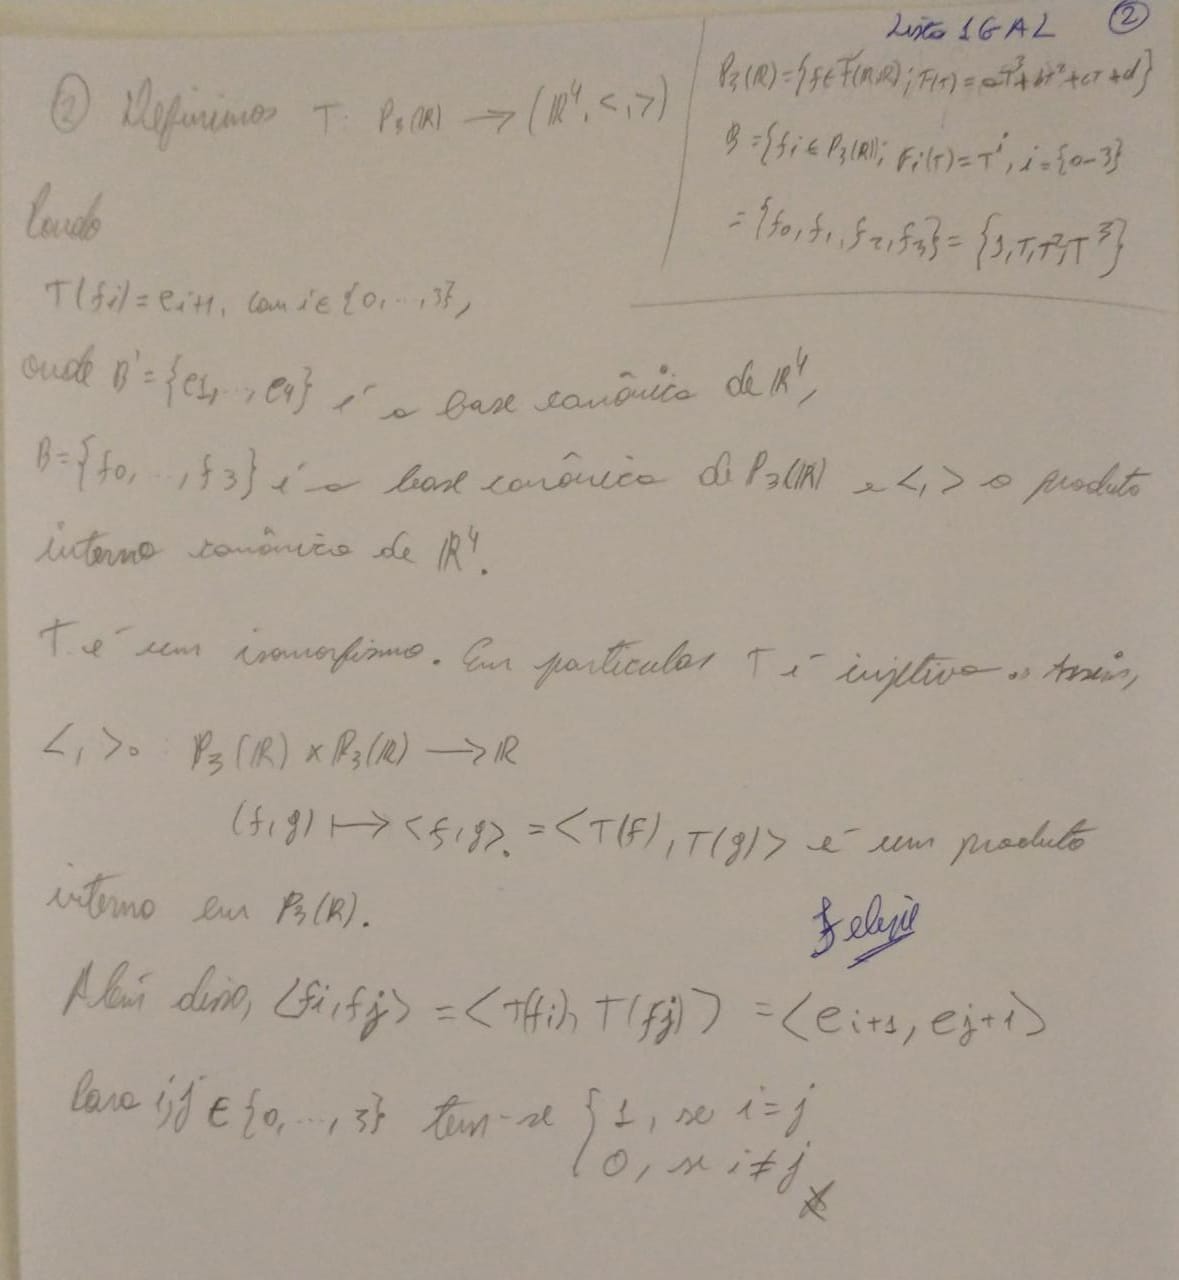 Lista 1 GAL ②
② Definimos T: P₃(ℝ) → (ℝ⁴, <,>)
P₃(ℝ) = {f ∈ F(ℝ,ℝ); F(T) = aT³ + bT² + cT + d}
B = {fi ∈ P₃(ℝ); Fi(T) = Tⁱ, i = {0-3}
= {f₀, f₁, f₂, f₃} = {1, T, T², T³}
Pondo
T(fi) = ei+1, com i ∈ {0, ..., 3},
onde B' = {e1, .., e4} é a base canônica de ℝ⁴,
B = {f0, ..., f3} é a base canônica de P₃(ℝ) e <,> o produto
interno canônico de ℝ⁴.
T é um isomorfismo. Em particular T é injetiva. Assim,
<,>₀: P₃(ℝ) x P₃(ℝ) → ℝ
(f,g) ↦ <f,g>₀ = <T(f), T(g)> é um produto
interno em P₃(ℝ).
Felipe
Além disso, <fi, fj> = <T(fi), T(fj)> = <ei+1, ej+1>
Para i,j ∈ {0, ..., 3} tem-se { 1, se i = j
0, se i ≠ j